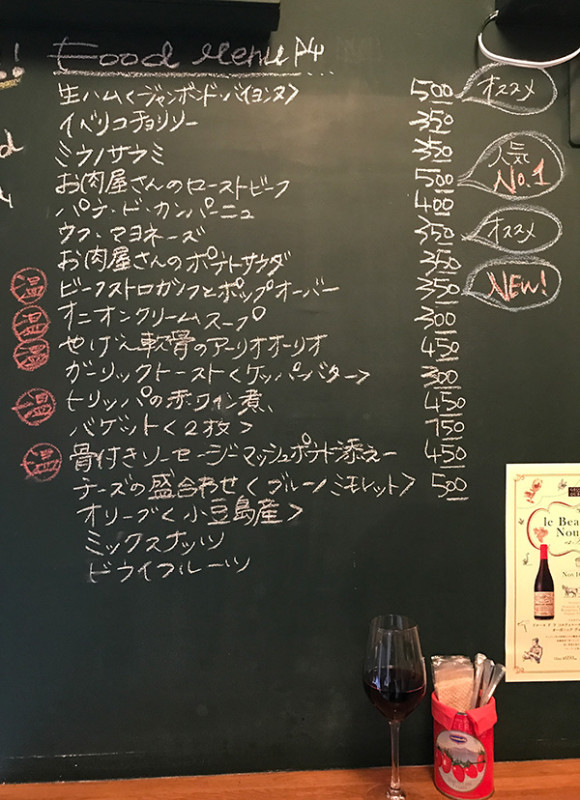 Food Menu A4
生ハム<ジャンボンド・バイヨンヌ> 500 オススメ
イベリコチョリソー 350
ミラノサラミ 350
お肉屋さんのローストビーフ 500 人気 No.1
パテ・ド・カンパーニュ 400
ウフ・マヨネーズ 350 オススメ
お肉屋さんのポテトサラダ 350
温 ビーフストロガノフとポップオーバー 350 NEW!
温 オニオンクリームスープ 300
温 やげん軟骨のアーリオオーリオ 450
ガーリックトースト<ケッパーバター> 300
温 トリッパの赤ワイン煮、 450
バゲット<2枚> 150
温 骨付きソーセージーマッシュポテト添えー 450
チーズの盛合わせ<ブルー/ミモレット> 500
オリーブ<小豆島産>
ミックスナッツ
ドライフルーツ
le Bea
Nou